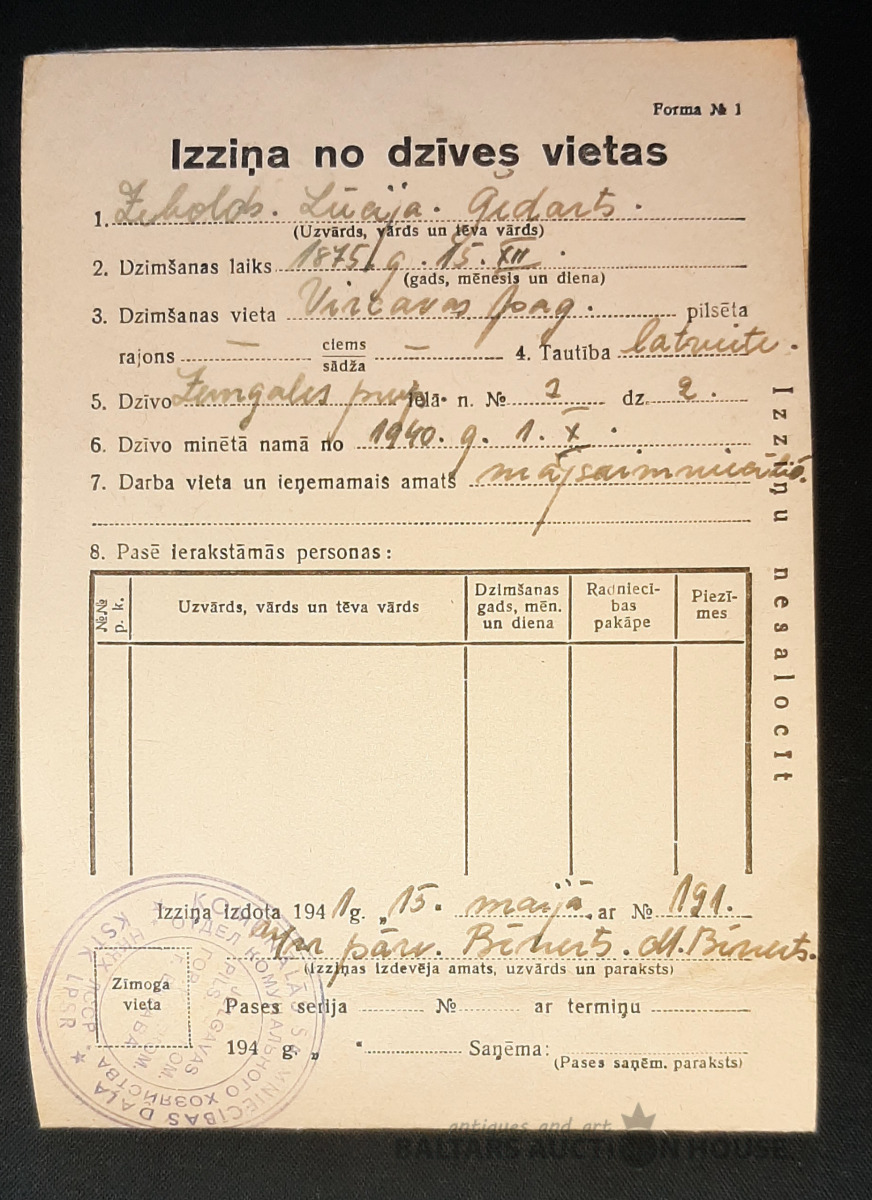 Forma № 1
Izziņa no dzīves vietas
1. Zebolds. Lūcija. Ģedarts.
(Uzvārds, vārds un tēva vārds)
2. Dzimšanas laiks 1875. g. 15. XII.
(gads, mēnesis un diena)
3. Dzimšanas vieta Vircavas pag. pilsēta
rajons — ciems — 4. Tautība latviete.
sādža
5. Dzīvo Zemgales ielā n. № dz. 2.
6. Dzīvo minētā namā no 1940. g. 1. X.
7. Darba vieta un ieņemamais amats mājsaimniecībā.
8. Pasē ierakstāmās personas:
№№ p. k.
Uzvārds, vārds un tēva vārds
Dzimšanas gads, mēn. un diena
Radniecī-bas pakāpe
Piezī-mes
Izziņu nesalocīt
Izziņa izdota 1941 g. „15. maijā, ar № 191.
pārv. Bīnerts. M. Bīnerts.
(Izziņas izdevēja amats, uzvārds un paraksts)
Zīmoga vieta
Pases serija № ar termiņu
194 g. „ “ Saņēma:
(Pases saņēm. paraksts)
KSIK LPSR
ОТДЕЛ КОМУНАЛЬНОГО ХОЗЯЙСТВА
antiques and art
BALTARS AUCTION HOUSE